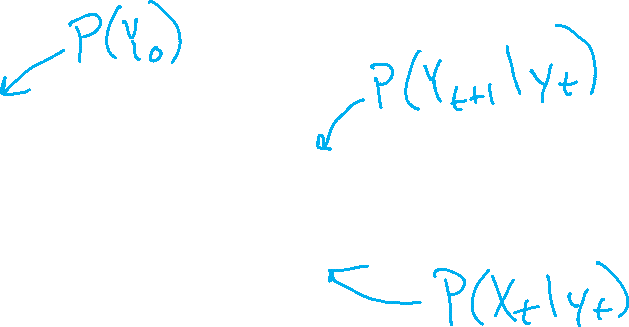 P(Y₀)
P(Yₜ₊₁|yₜ)
P(Xₜ|yₜ)